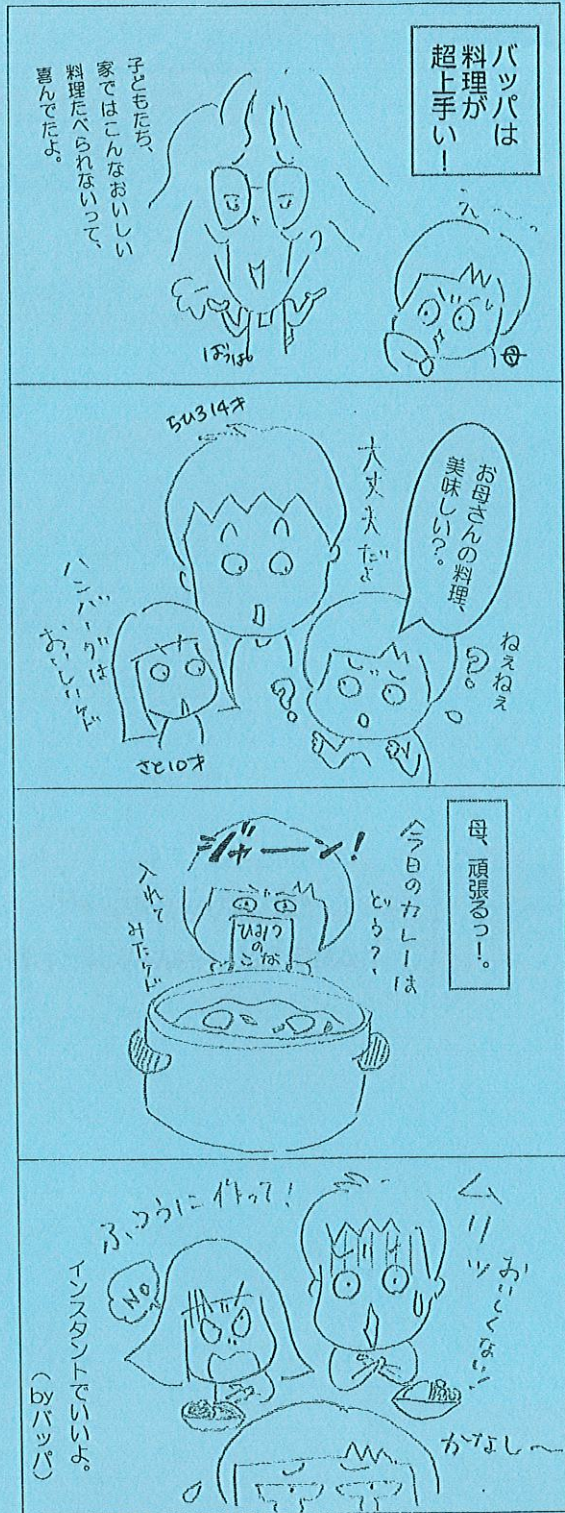 バッパは
料理が
超上手い！
え〜っ
母
子どもたち、
家ではこんなおいしい
料理たべられないって、
喜んでたよ。
ばっぱ。
お母さんの料理、
美味しい？。
ねぇねぇ
？
大丈夫だよ
ちひろ14才
？
ハンバーグは
おいしいケド
さと10才
母、頑張るっ！。
今日のカレーは
どう？
ジャーン！
ひみつ
の
こな
入れて
みたケド
ムリッ
おいしくない！
ふつうに作って！
NO
かなし〜
インスタントでいいよ。
（byバッパ）